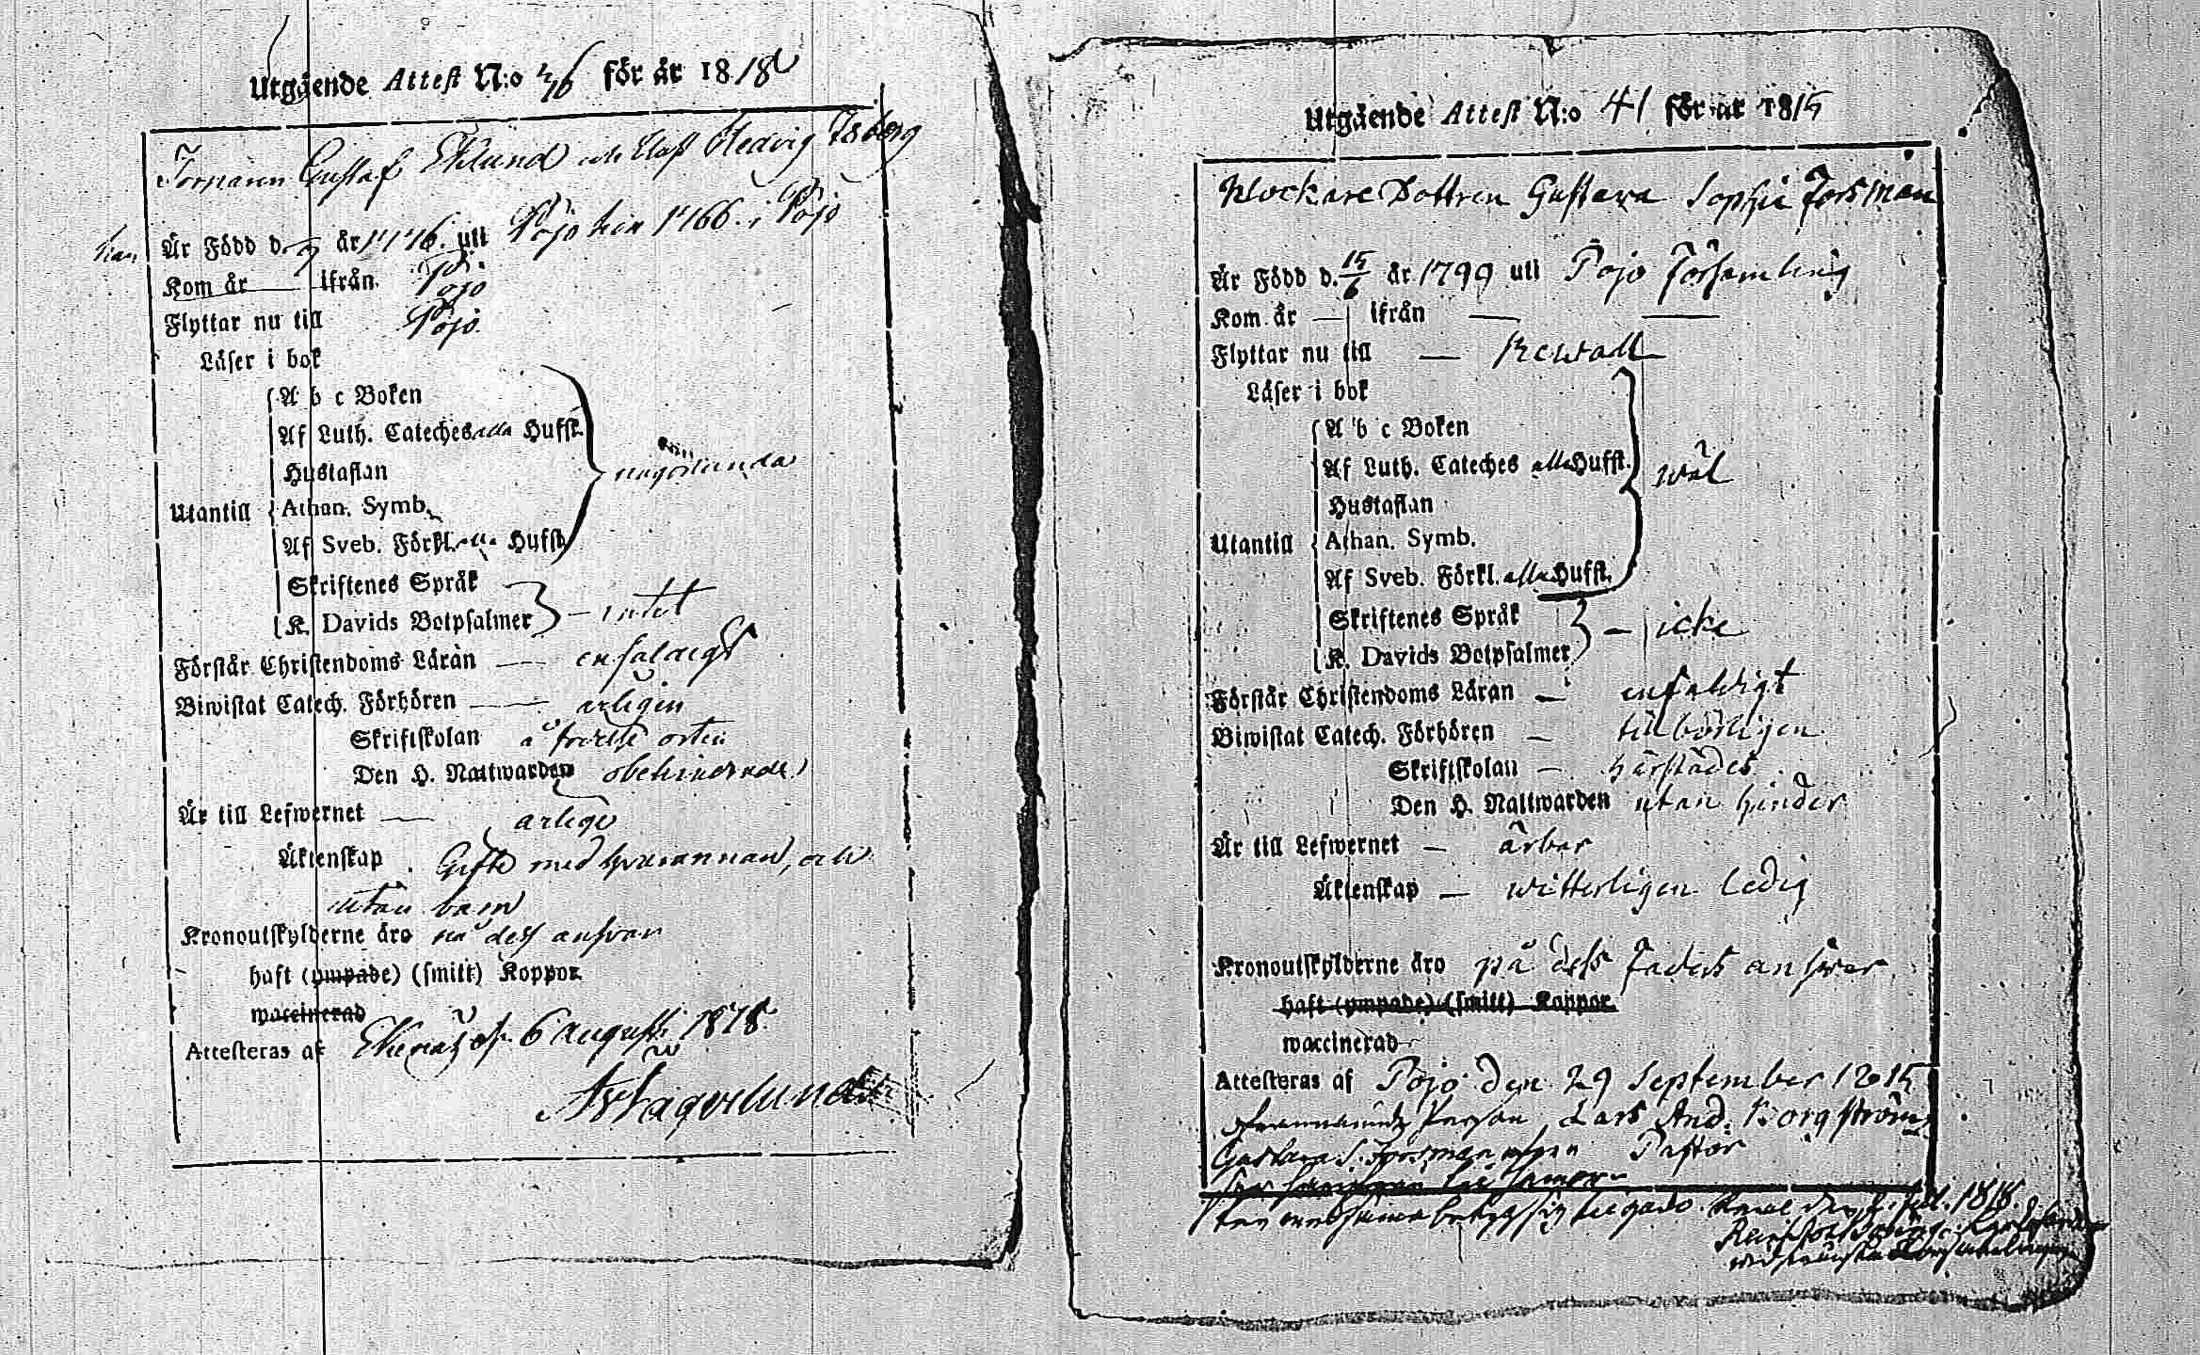 Utgående Attest N:o 26 för år 1818
Johann Gustaf Eklund och Hedvig Isberg
han
Är Född d. år 1776. uti Pojo hon 1766. i Pojo
Kom år — ifrån Pojo
Flyttar nu till Pojo
Läser i bok
A b c Boken
Af Luth. Cateches alla Hufst.
Hustaflan
någorlunda
Utantill
Athan. Symb.
Af Sveb. Förkl. alla Hufst.
Skriftenes Språk
K. Davids Botpsalmer — intet
Förstår Christendoms Läran — enfaldigt
Biwistat Catech. Förhören — årligen
Skriftskolan å orten
Den H. Nattwarden obehindrade
Är till Lefwernet — ärlige
Äktenskap Gifte med hvarannan, och
utan barn
Kronoutskylderne äro på dess ansvar
haft (ympade) (smitt) Koppor
waccinerad
Attesteras af Ekenäs d. 6 Augusti 1818.
Utgående Attest N:o 41 för år 1815
Klockare Dottren Gustava Sophia Forsman
Är Född d. 15/6 år 1799 uti Pojo Församling
Kom år — ifrån — —
Flyttar nu till — Rewall
Läser i bok
A b c Boken
Af Luth. Cateches alla Hufst.
wäl
Hustaflan
Utantill
Athan. Symb.
Af Sveb. Förkl. alla Hufst.
Skriftenes Språk
— icke
K. Davids Botpsalmer
Förstår Christendoms Läran — enfaldigt
Biwistat Catech. Förhören — tillbörligen
Skriftskolan — härstädes
Den H. Nattwarden utan hinder
Är till Lefwernet — ärbar
Äktenskap — witterligen ledig
Kronoutskylderne äro på dess Faders answar
haft (ympade) (smitt) Koppor
waccinerad
Attesteras af Pojo den 29 September 1815
Lars And. Borgström
Gustava S. Forsman Pastor
1818